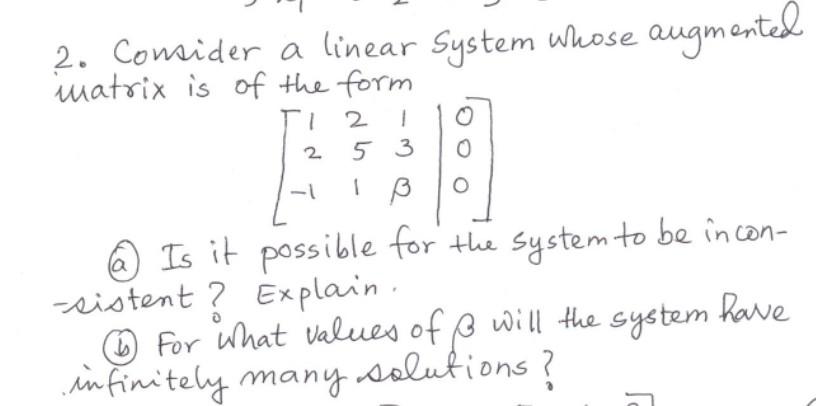 2. Consider a linear System whose augmented
matrix is of the form
1 2 1 | 0
2 5 3 | 0
-1 1 β | 0
(a) Is it possible for the system to be incon-
-sistent? Explain.
(b) For what values of β will the system have
infinitely many solutions?